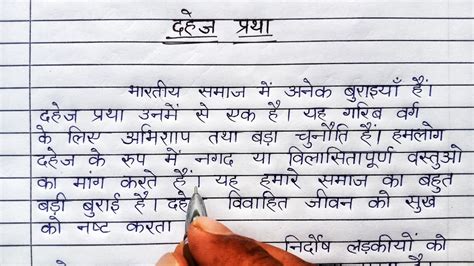 दहेज प्रथा
भारतीय समाज में अनेक बुराइयाँ हैं।
दहेज प्रथा उनमें से एक है। यह गरिब वर्ग
के लिए अभिशाप तथा बड़ा चुनौति है। हमलोग
दहेज के रुप में नगद या विलासितापूर्ण वस्तुओ
का मांग करते हैं। यह हमारे समाज का बहुत
बड़ी बुराई है। विवाहित जीवन को सुख
को नष्ट करता
निर्दोष लड़कीयों को